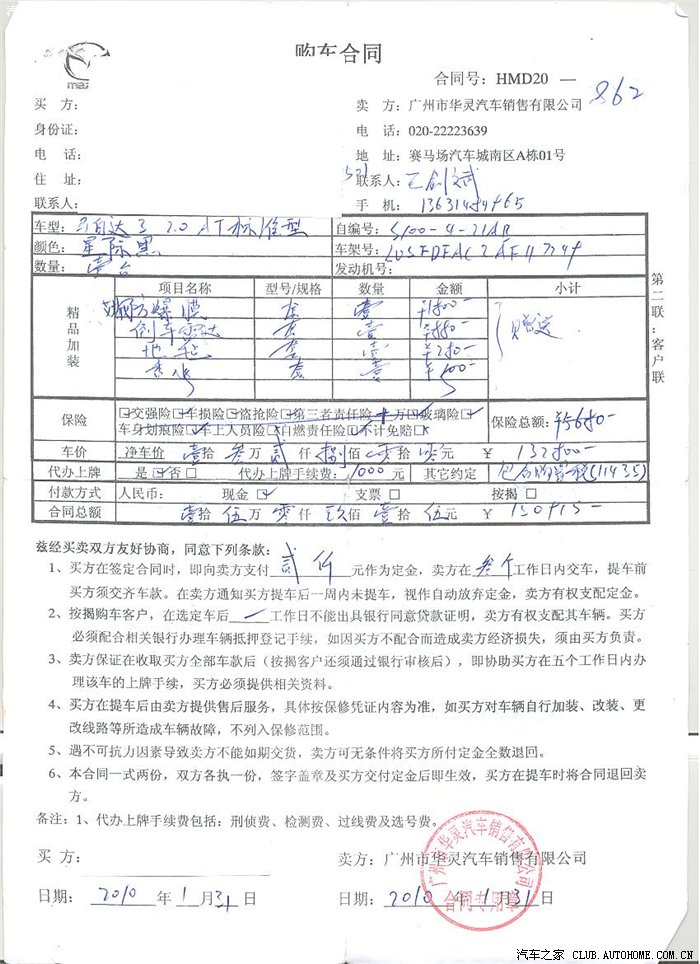 购车合同
合同号：HMD20 — 862
买 方： 卖 方：广州市华灵汽车销售有限公司
身份证： 电 话：020-22223639
电 话： 地 址：赛马场汽车城南区A栋01号
住 址： 联系人：
联系人： 手 机：
车型：马自达3 2.0 AT标准型 自编号：
颜色：星际黑 车架号：
数量：壹台 发动机号：
项目名称 型号/规格 数量 金额 小计
精品加装
防爆膜 套 壹 ¥1800- 赠送
倒车雷达 套 壹
地毯 套 壹 ¥280-
香水 套 壹
第二联：客户联
保险 ☑交强险☑车损险☑盗抢险☑第三者责任险 十万☑玻璃险 保险总额：¥5680-
车身划痕险☑车上人员险☐自燃责任险☐不计免赔☐
车价 净车价 壹拾叁万贰仟捌佰零拾零元 ¥ 132800-
代办上牌 是☑否☐ 代办上牌手续费：1000元 其它约定 包含购置税(11435)
付款方式 人民币： 现金☑ 支票☐ 按揭☐
合同总额 壹拾伍万零仟玖佰壹拾伍元 ¥ 150915-
兹经买卖双方友好协商，同意下列条款：
1、买方在签定合同时，即向卖方支付 贰仟 元作为定金，卖方在 叁个 工作日内交车，提车前
买方须交齐车款。在卖方通知买方提车后一周内未提车，视作自动放弃定金，卖方有权支配定金。
2、按揭购车客户，在选定车后 工作日不能出具银行同意贷款证明，卖方有权支配其车辆。买方
必须配合相关银行办理车辆抵押登记手续，如因买方不配合而造成卖方经济损失，须由买方负责。
3、卖方保证在收取买方全部车款后（按揭客户还须通过银行审核后），即协助买方在五个工作日内办
理该车的上牌手续，买方必须提供相关资料。
4、买方在提车后由卖方提供售后服务，具体按保修凭证内容为准，如买方对车辆自行加装、改装、更
改线路等所造成车辆故障，不列入保修范围。
5、遇不可抗力因素导致卖方不能如期交货，卖方可无条件将买方所付定金全数退回。
6、本合同一式两份，双方各执一份，签字盖章及买方交付定金后即生效，买方在提车时将合同退回卖
方。
备注：1、代办上牌手续费包括：刑侦费、检测费、过线费及选号费。
买 方： 卖方：广州市华灵汽车销售有限公司
日期：2010年1月31日 日期：2010年1月31日
广州市华灵汽车销售有限公司
合同专用章
汽车之家 CLUB.AUTOHOME.COM.CN